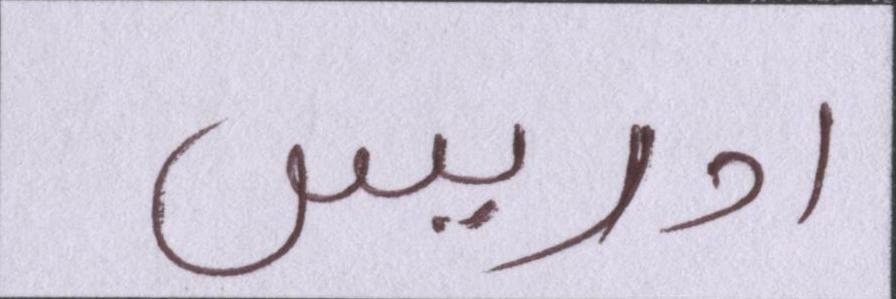 ادريس